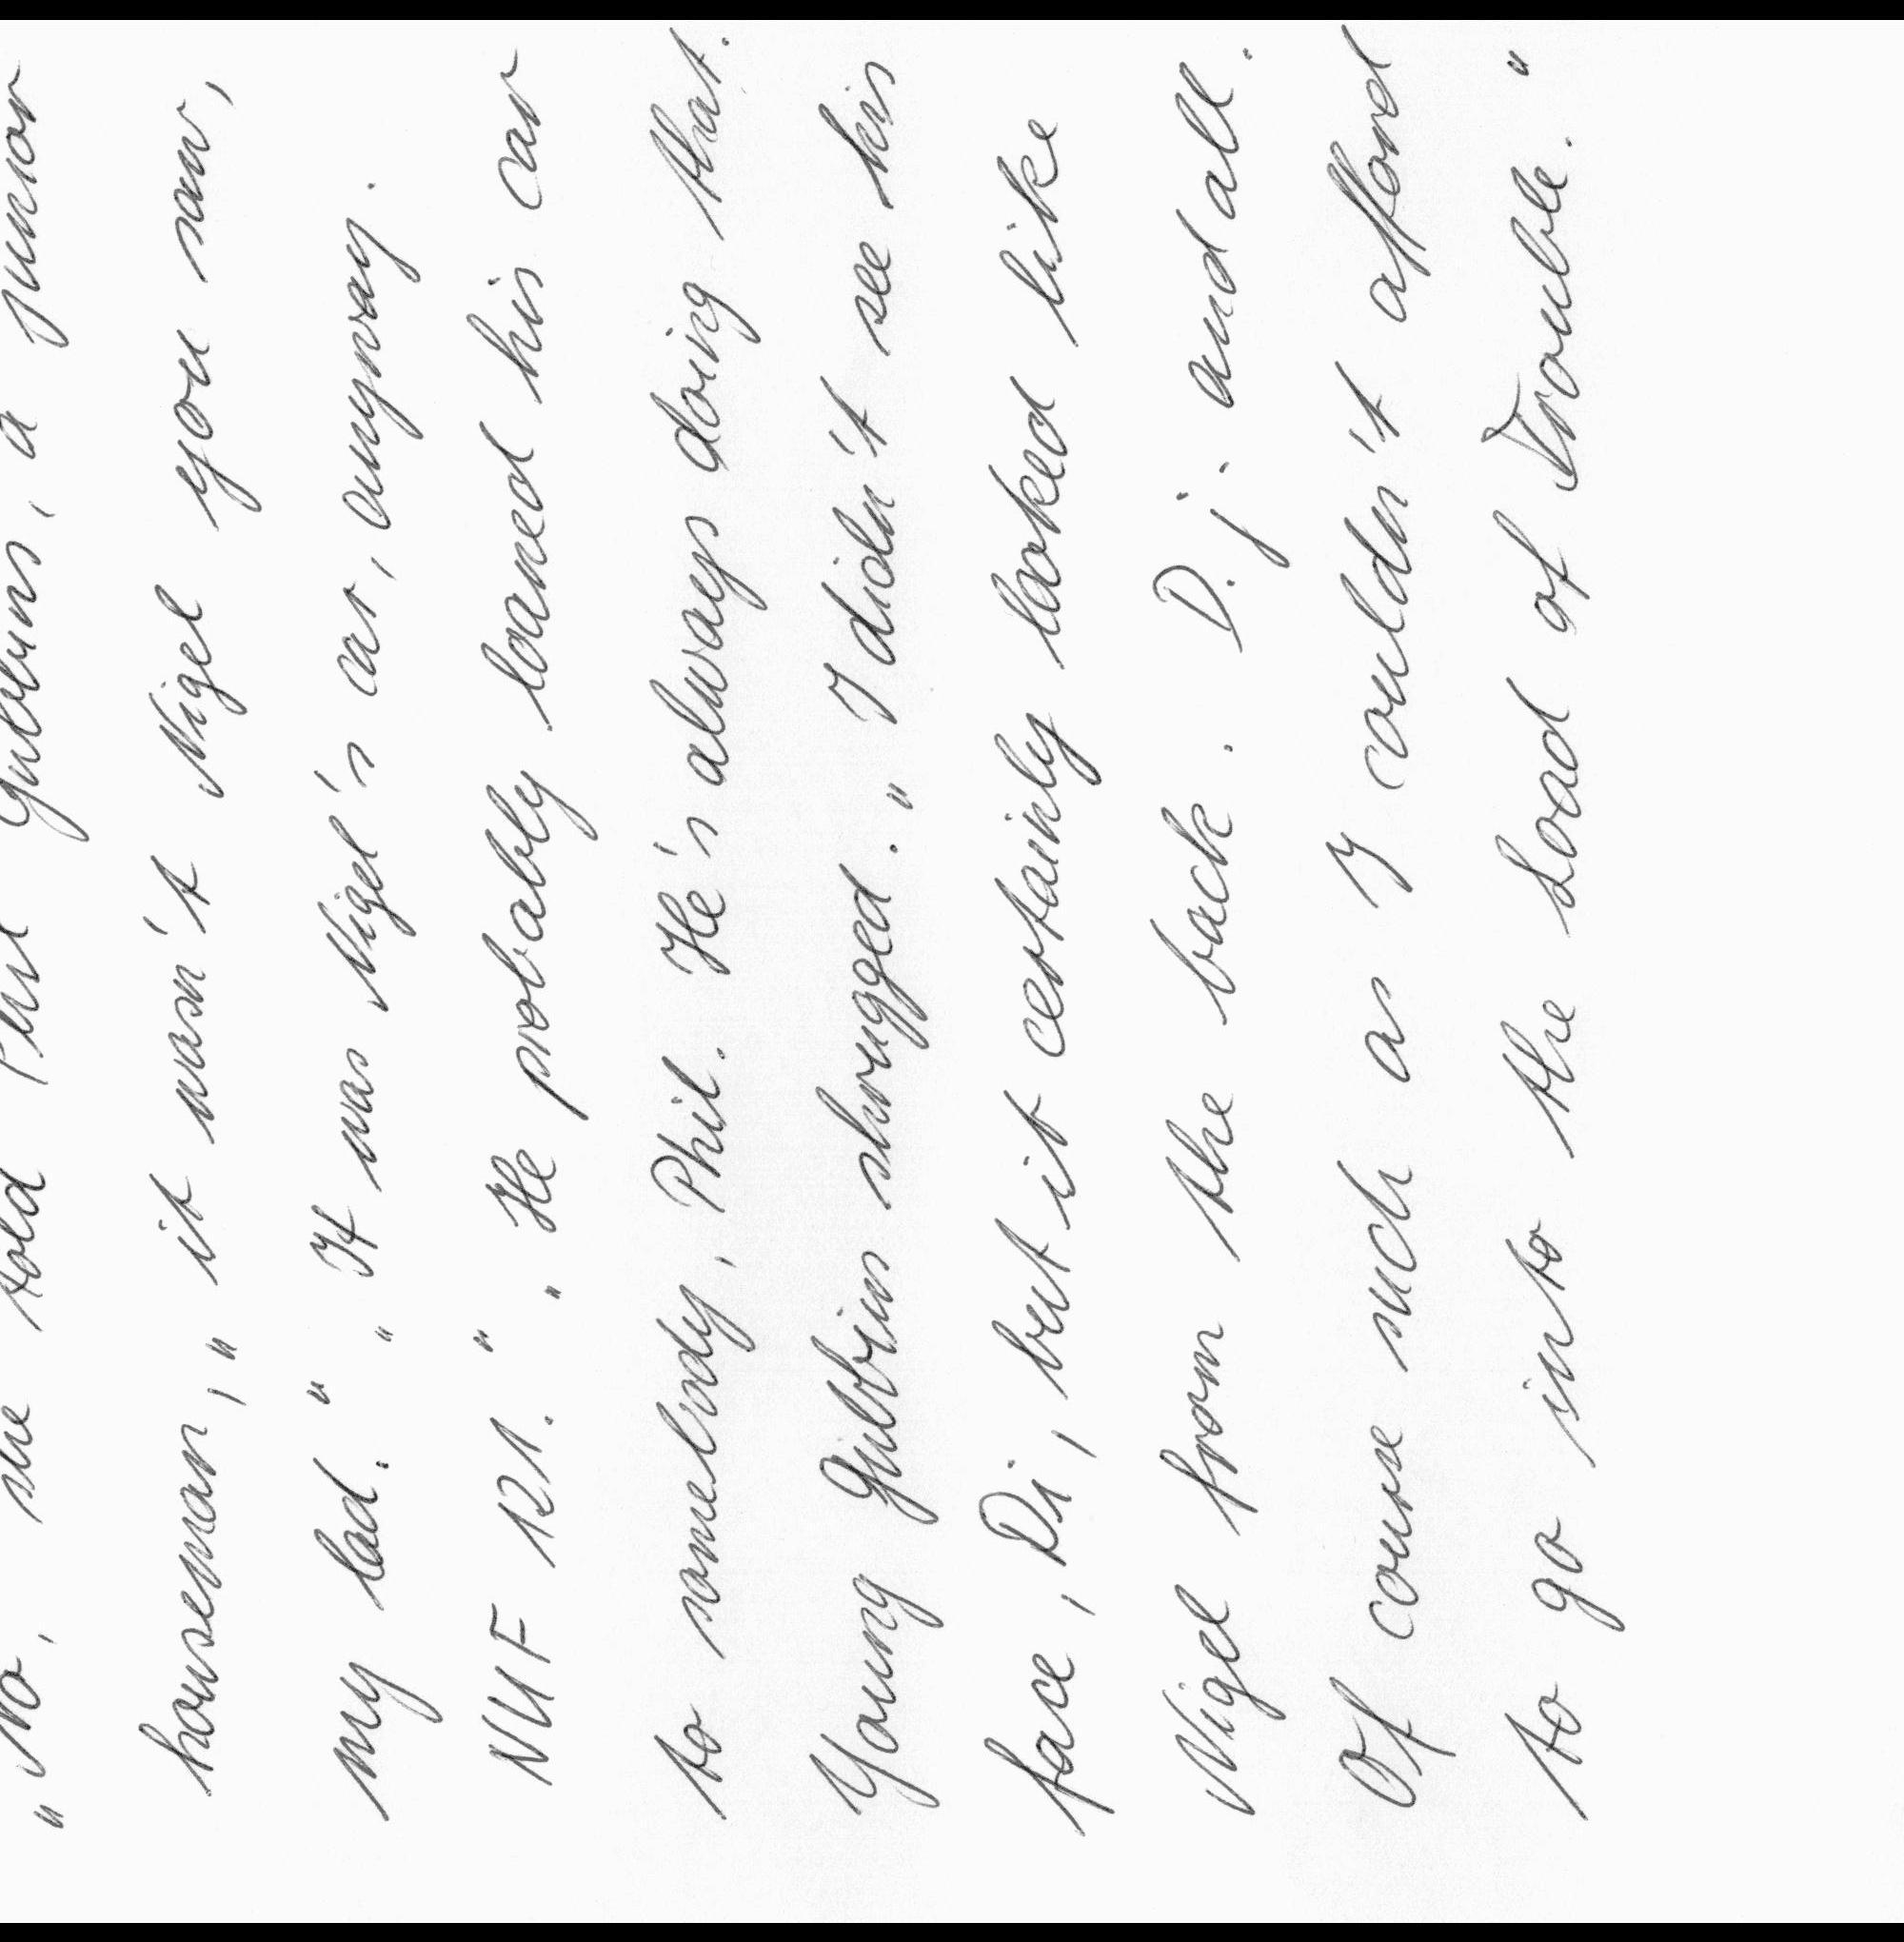 "No," she told Phil Gubbins, a junior
houseman, "it wasn't Nigel you saw,
my lad." "It was Nigel's car, anyway.
NUF 121." "He probably loaned his car
to somebody, Phil. He's always doing that.
Young Gubbins shrugged. "I didn't see his
face, Di, but it certainly looked like
Nigel from the back. D.j. and all.
Of course such as I couldn't afford
to go into the Load of Trouble."